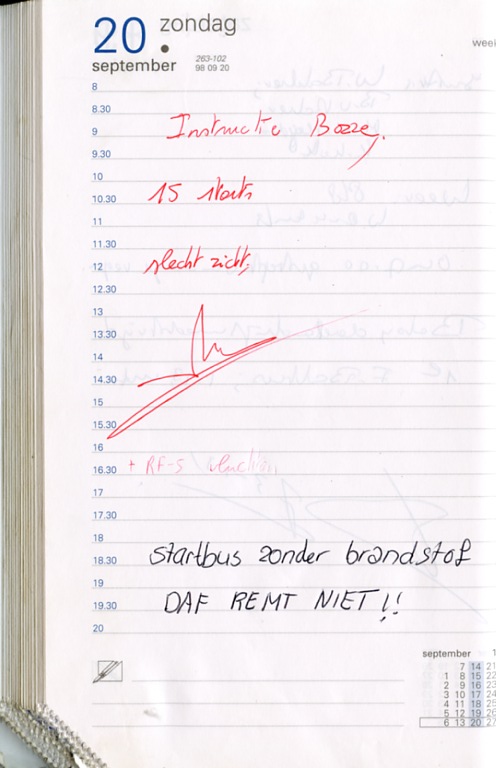 20 zondag
september
263-102
98 09 20
8
8.30
9 Instructie Bozzey.
9.30
10
10.30 15 starts
11
11.30
12 slecht zicht,
12.30
13
13.30
14
14.30
15
15.30
16
16.30 + RF-5
17
17.30
18
18.30 startbus zonder brandstof
19
19.30 DAF REMT NIET!!
20
september
7 14 21
1 8 15 22
2 9 16 23
3 10 17 24
4 11 18 25
5 12 19 26
6 13 20 27